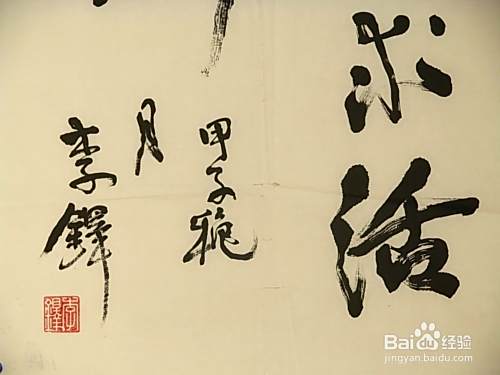 求活
甲子
月
李鐸
李鐸
Bai 经验
jingyan.baidu.com